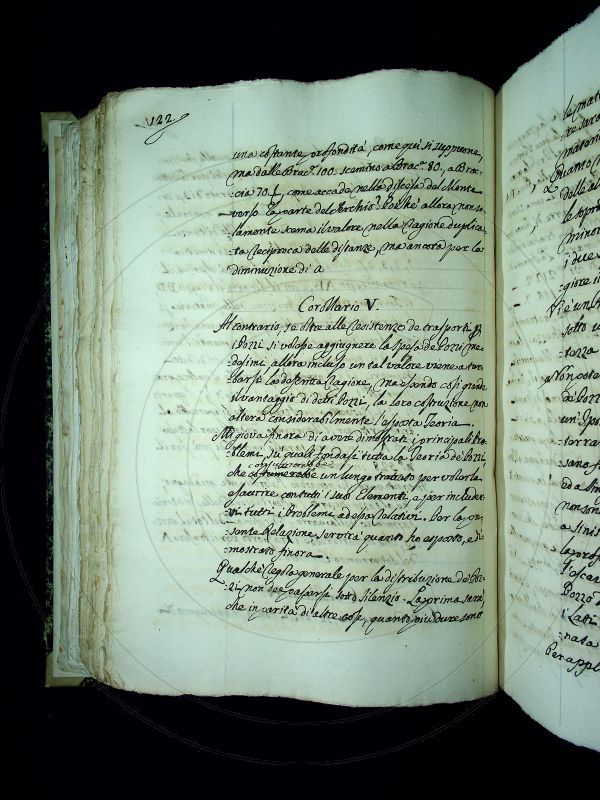 122
una costante profondità, come quì si suppone,
ma dalle Brac.ª 100. scemino a Brac.ª 80., a Brac-
cia 70. &, come accade nella discesa del Monte
verso la parte del Serchio. Poiché allora non so-
lamente scema il valore nella Ragione duplica-
ta Reciproca delle distanze, ma ancora per la
diminuzione di a
Corollario V.
Al contrario, se oltre alle Resistenze de trasporti p
i Pozzi, si volesse aggiugnere la spesa de Pozzi me-
desimi, allora incluso un tal valore viene a tur-
barsi la descritta Ragione, ma essendo così grande
il vantaggio di detti Pozzi, la loro costruzione non
altera considerabilmente l'esposta Teoria.
Mi giova finora di avere dimostrati i principali Pro-
blemi, su quali fondasi tutta la Teoria de Pozzi,
che un lungo trattato per volerla
esaurire con tutti i suoi Elementi, e per include-
vi tutti i Problemi ad essa Relativi. Per la pre-
sente Relazione servirà quanto ho esposto, e di-
mostrato finora.
Qualche Regola generale per la distribuzione de Poz-
zi non dee passarsi sotto silenzio. La prima sarà,
che in parità di altre cose, quanto più dure sono
le mate
re sara
materia
Quanto m
delle al
le sopra
minor
i due
giore il
Vi è un
sotto u
tezza
Non oste
de Pozzi
un'Ipo
terra
sano
ed a sin
non son
a sinis
la prof
Pozzo d
i Lati
nata
Per appl